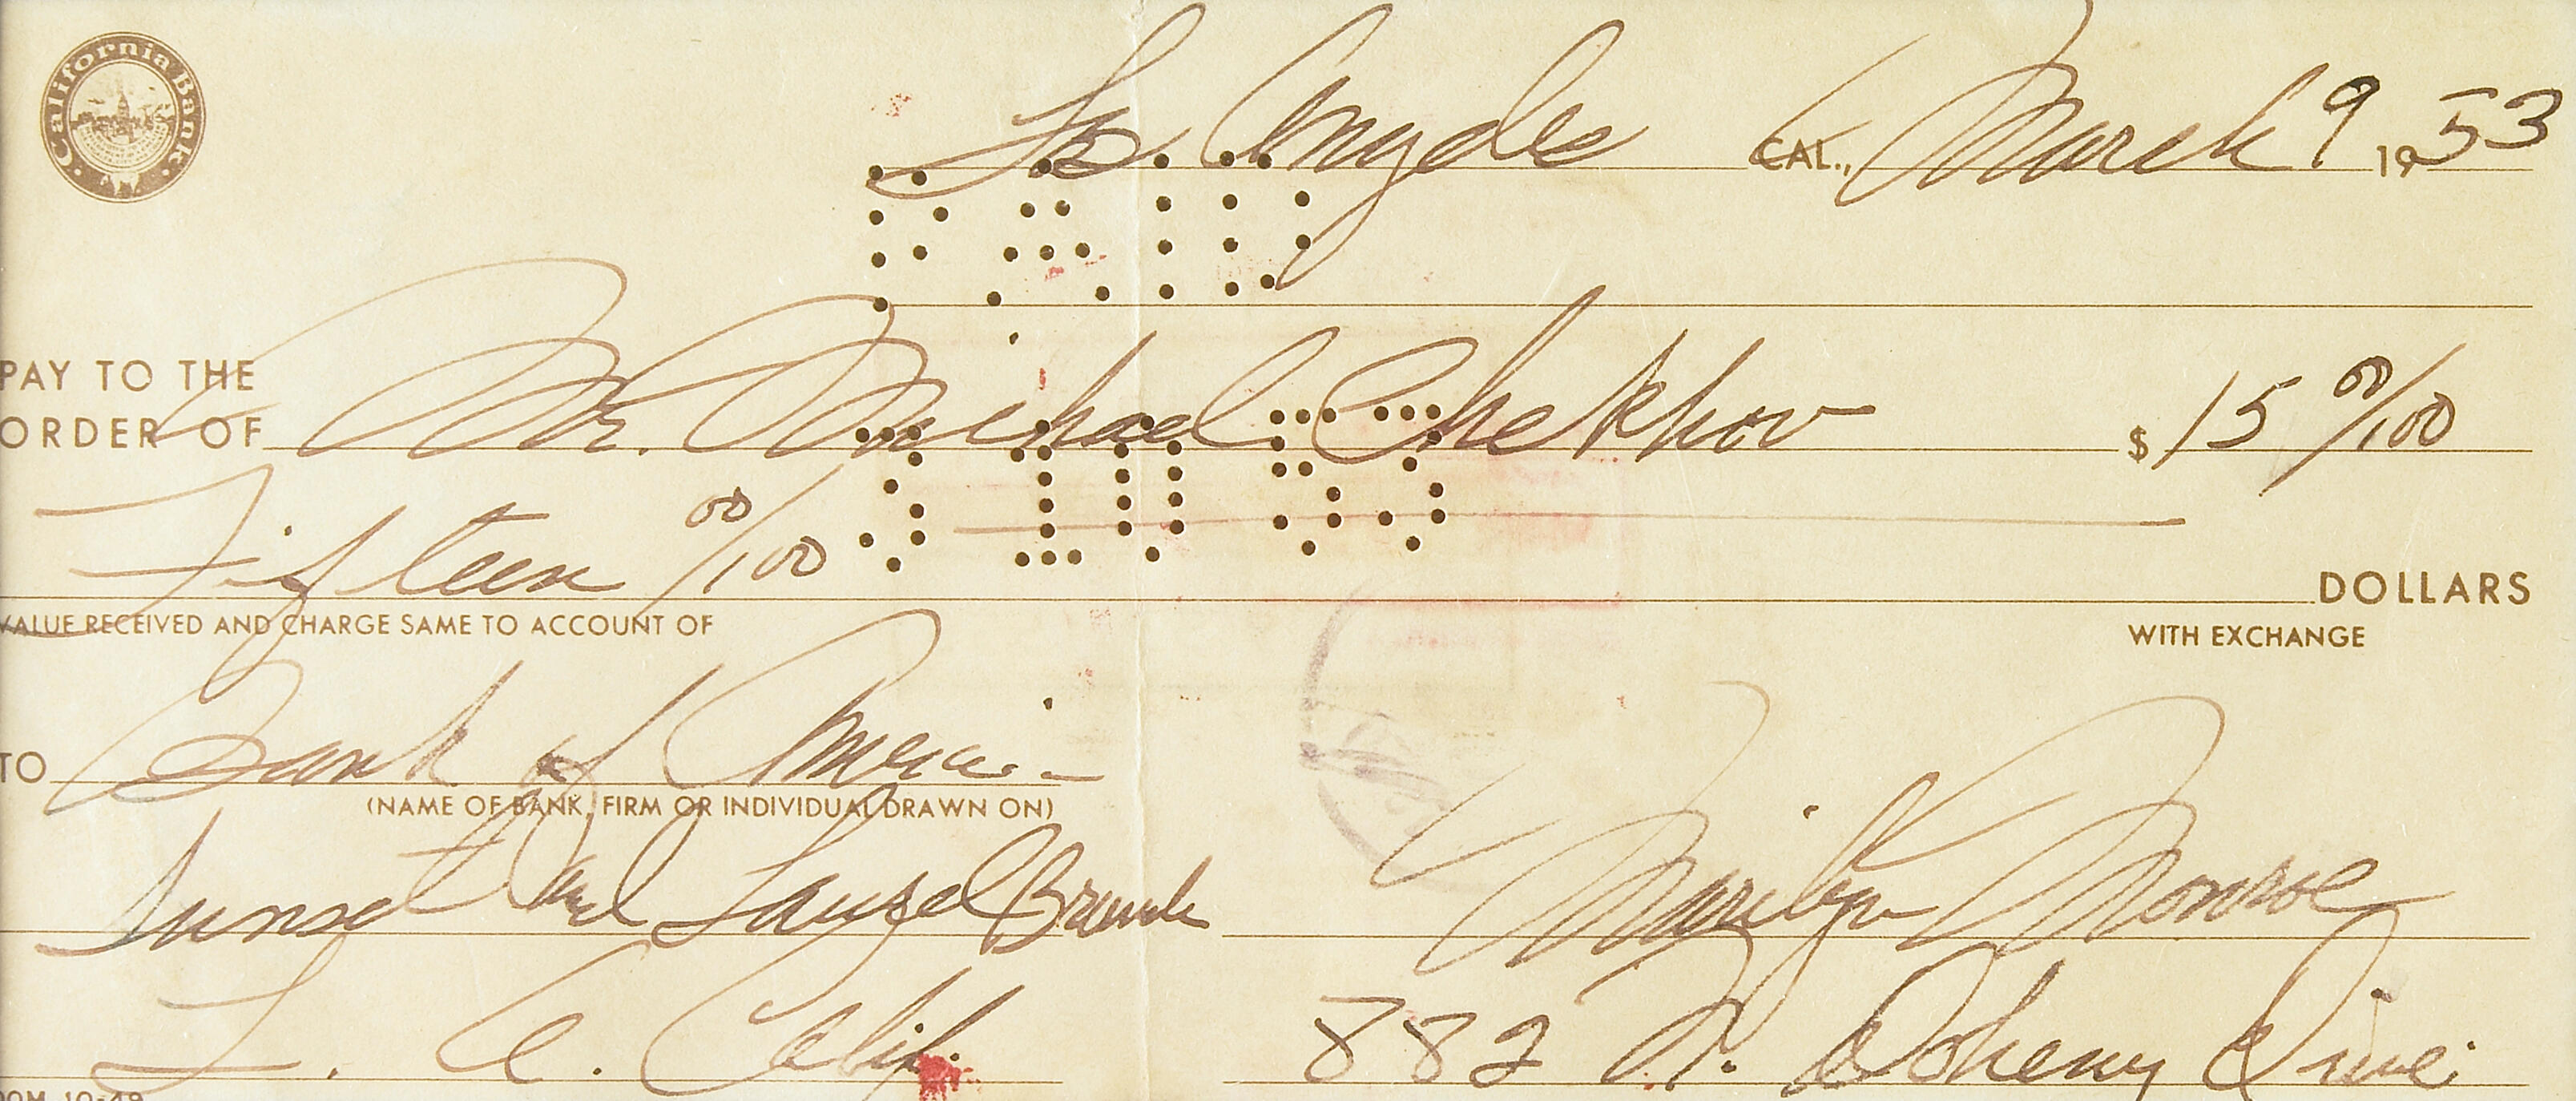 California Bank
Los Angeles CAL., March 9 1953
PAID
PAY TO THE
ORDER OF Mr. Michael Chekhov $15 00/100
3 10 53
Fifteen 00/100 DOLLARS
VALUE RECEIVED AND CHARGE SAME TO ACCOUNT OF WITH EXCHANGE
TO Bank of America
(NAME OF BANK, FIRM OR INDIVIDUAL DRAWN ON)
Sunset and Laurel Branch Marilyn Monroe
L. A. Calif. 882 N. Doheny Drive
10-49